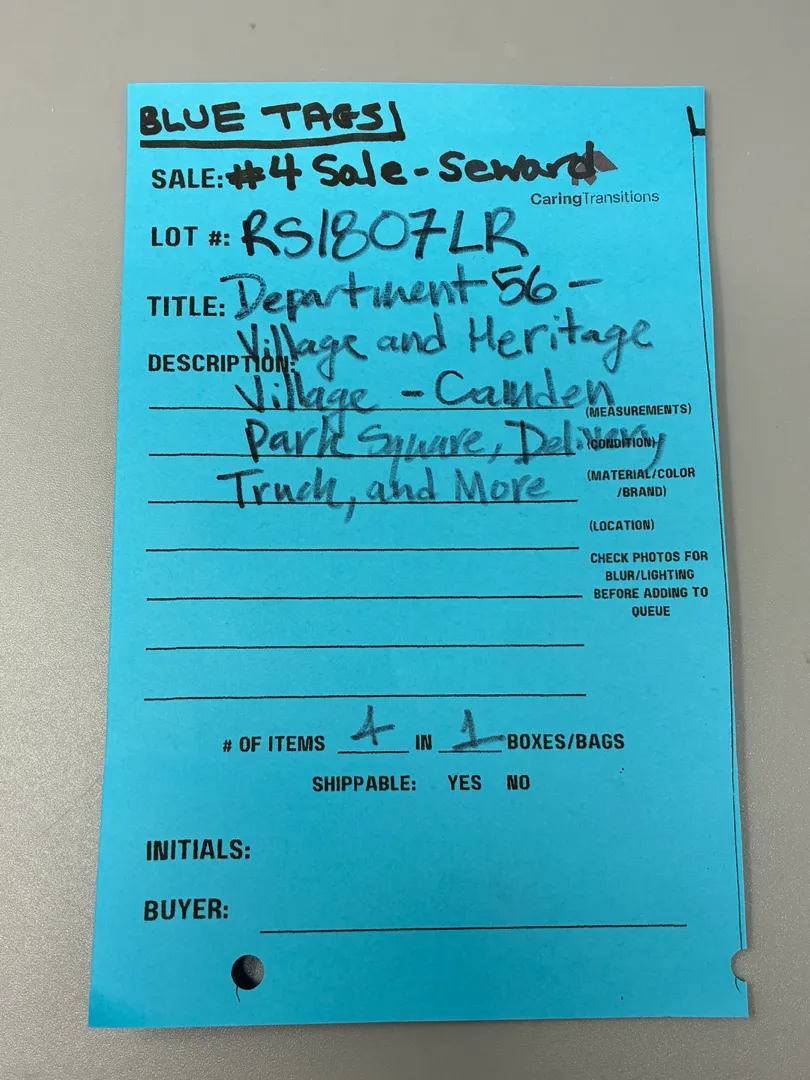 BLUE TAGS
SALE: #4 Sale - Seward
CaringTransitions
LOT #: RS1807LR
TITLE: Department 56 -
Village and Heritage
DESCRIPTION:
Village - Camden
(MEASUREMENTS)
Park Square, Delivery
(CONDITION)
Truck, and More
(MATERIAL/COLOR
/BRAND)
(LOCATION)
CHECK PHOTOS FOR
BLUR/LIGHTING
BEFORE ADDING TO
QUEUE
# OF ITEMS 4 IN 1 BOXES/BAGS
SHIPPABLE: YES NO
INITIALS:
BUYER: